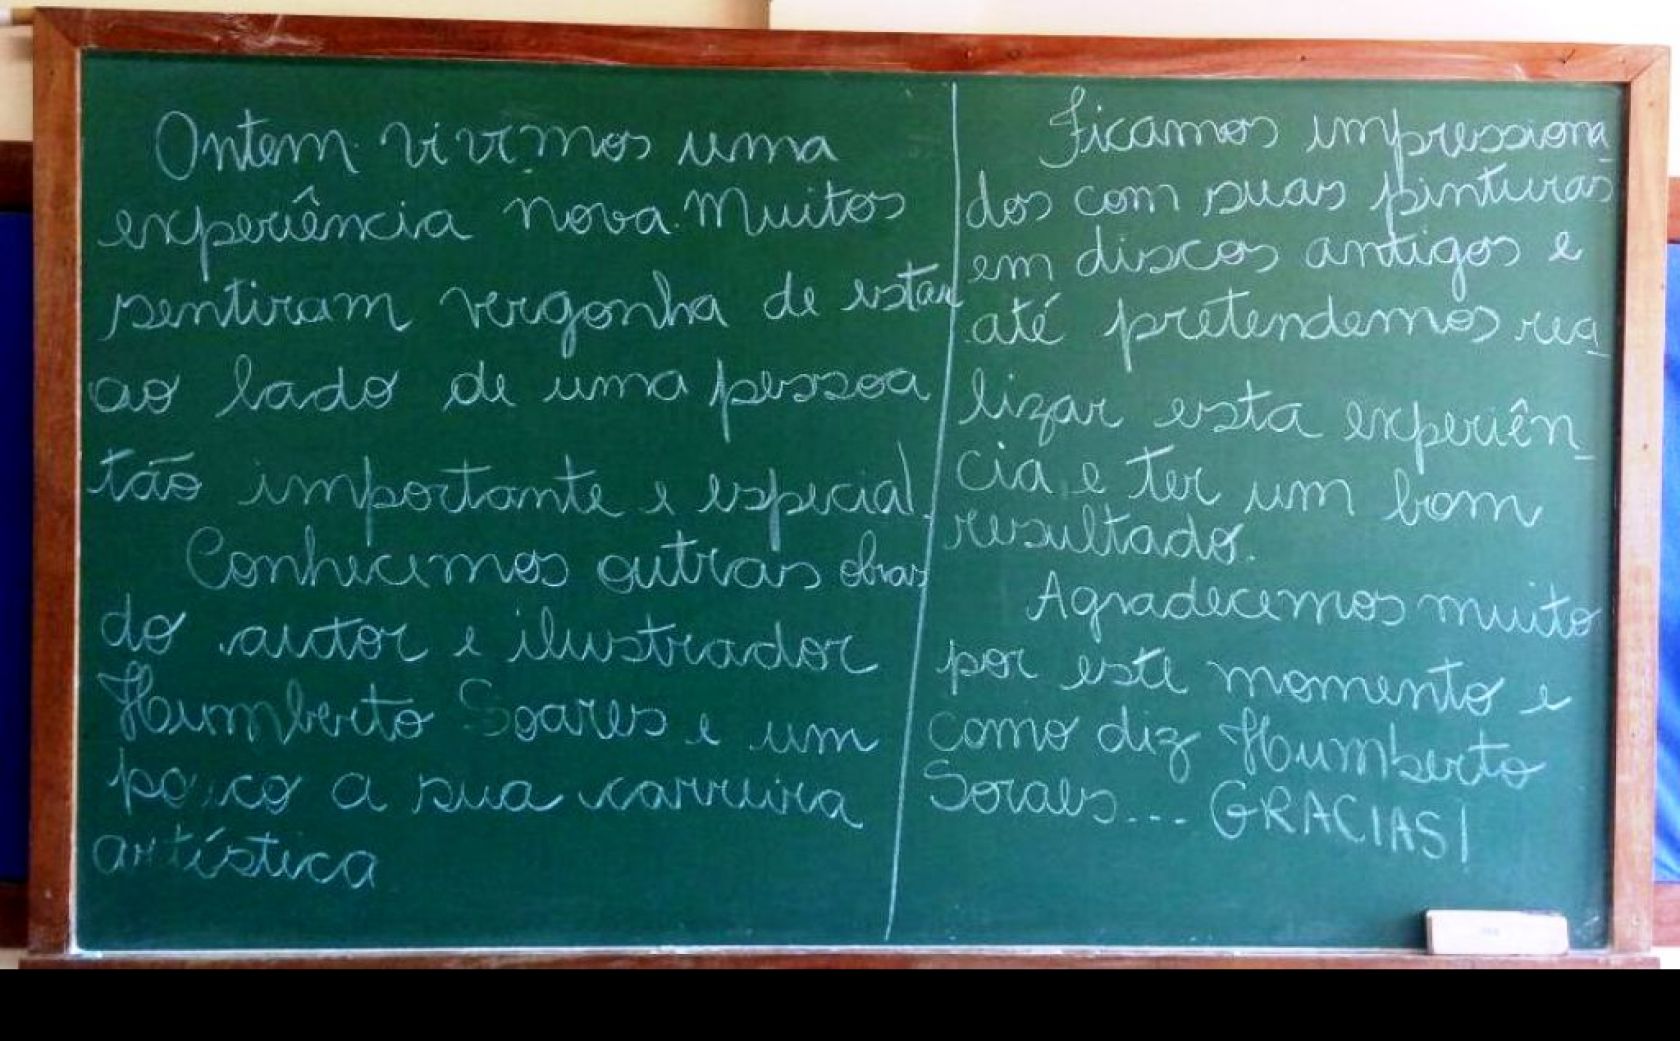 Ontem vivemos uma
experiência nova. Muitos
sentiram vergonha de estar
ao lado de uma pessoa
tão importante e especial.
Conhecemos outras obras
do autor e ilustrador
Humberto Soares e um
pouco a sua carreira
artística
Ficamos impressiona
dos com suas pinturas
em discos antigos e
até pretendemos rea
lizar esta experiên
cia e ter um bom
resultado.
Agradecemos muito
por este momento e
como diz Humberto
Soraes... GRACIAS!